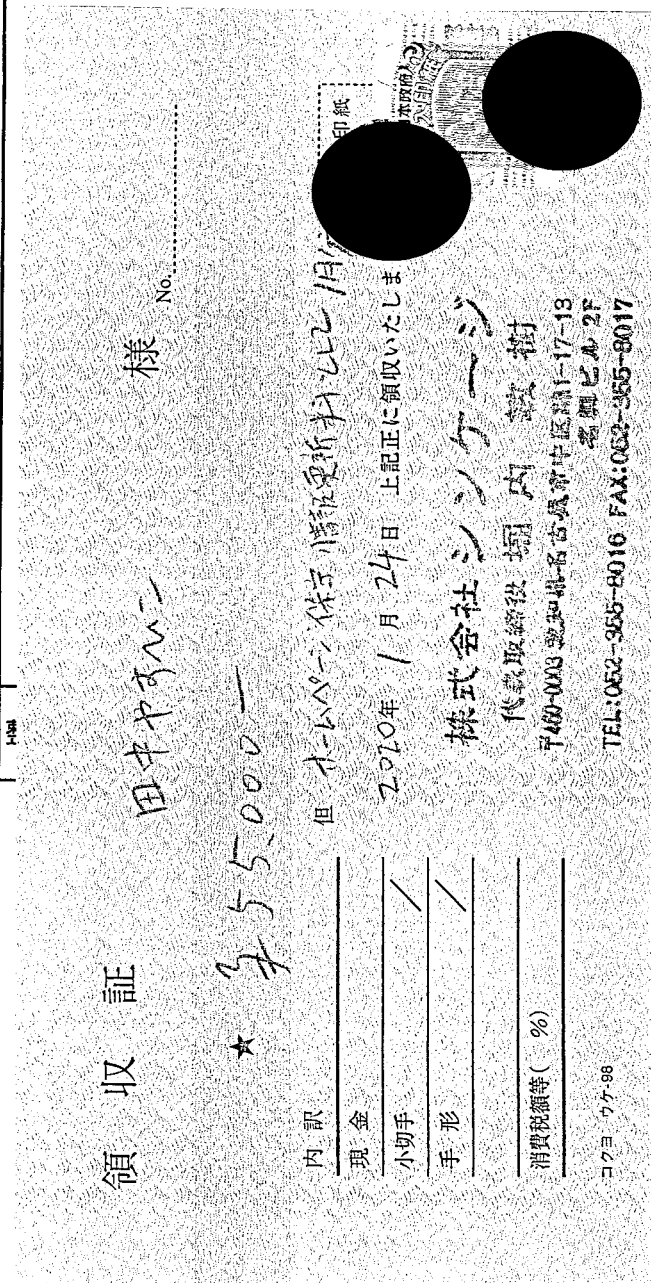 領収証
No.
田中やすひこ 様
★ ¥55,000-
但 ホームページ保守 情報更新料として 1月
2020年 1月 24日 上記正に領収いたしま
印紙
内訳
現金
小切手 /
手形 /
消費税額等( %)
コクヨ ウケ-98
株式会社シンゲージ
代表取締役 堀内
〒460-0003 愛知県名古屋市中区錦1-17-13
名興ビル 2F
TEL:052-955-8016 FAX:052-955-8017